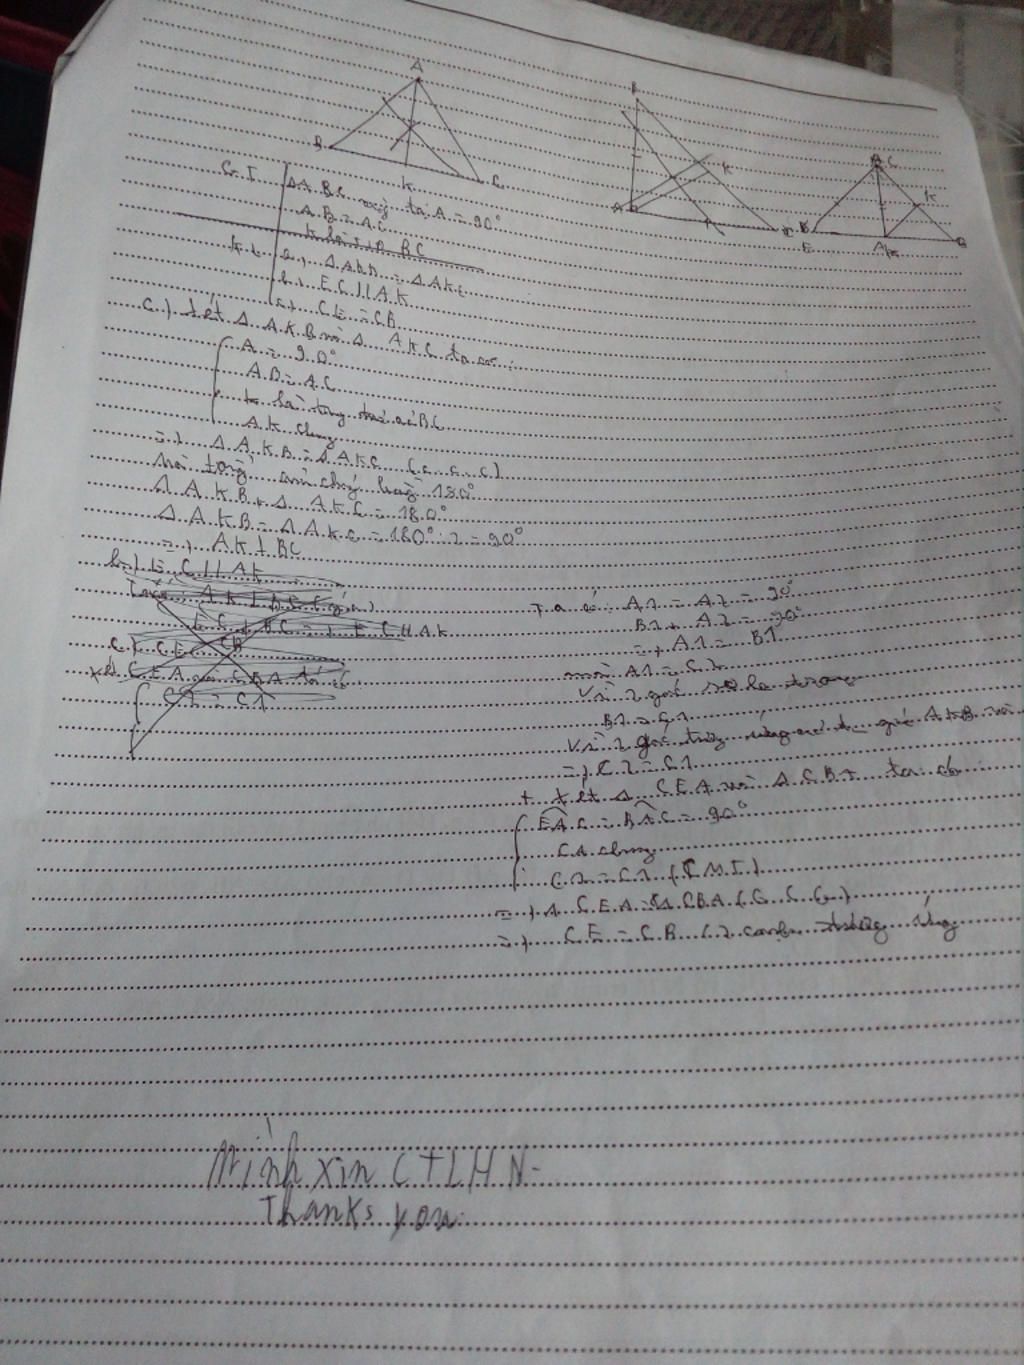 A
B
K
C
A
K
B
E
A
K
G.T
ΔABC vuông tại A = 90°
AB = AC
BC
a) ΔAKB = ΔAKC
b) EC // AK
c) CE = CB
Xét Δ AKB và Δ AKC ta có:
A = 90°
AB = AC
K là trung BC
AK chung
=> ΔAKB = ΔAKC (c.c.c)
180°
ΔAKB + ΔAKC = 180°
ΔAKB = ΔAKC = 180° : 2 = 90°
=> AK ⊥ BC
b) EC // AK
AK ⊥ BC
BC => EC // AK
c) CE CB
Xét CEA
C2 = C1
Ta có: A1 = A2 = 90°
B1 + A2 = 90°
=> A1 = B1
mà A1 = C2
Vì 2 góc so le trong
B1 = C1
Vì 2 góc AKB và
=> C2 = C1
+ Xét Δ CEA và Δ CBA ta có:
EAC = BAC = 90°
CA chung
C2 = C1 (CMT)
=> Δ CEA = Δ CBA (G.C.G)
=> CE = CB (2 cạnh tương ứng
Mình xin CTLHN-
Thanks you